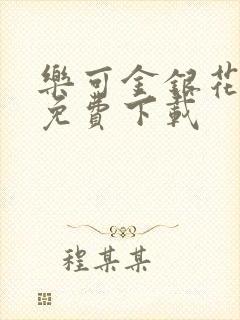 樂可金銀花
免費下載
程某某